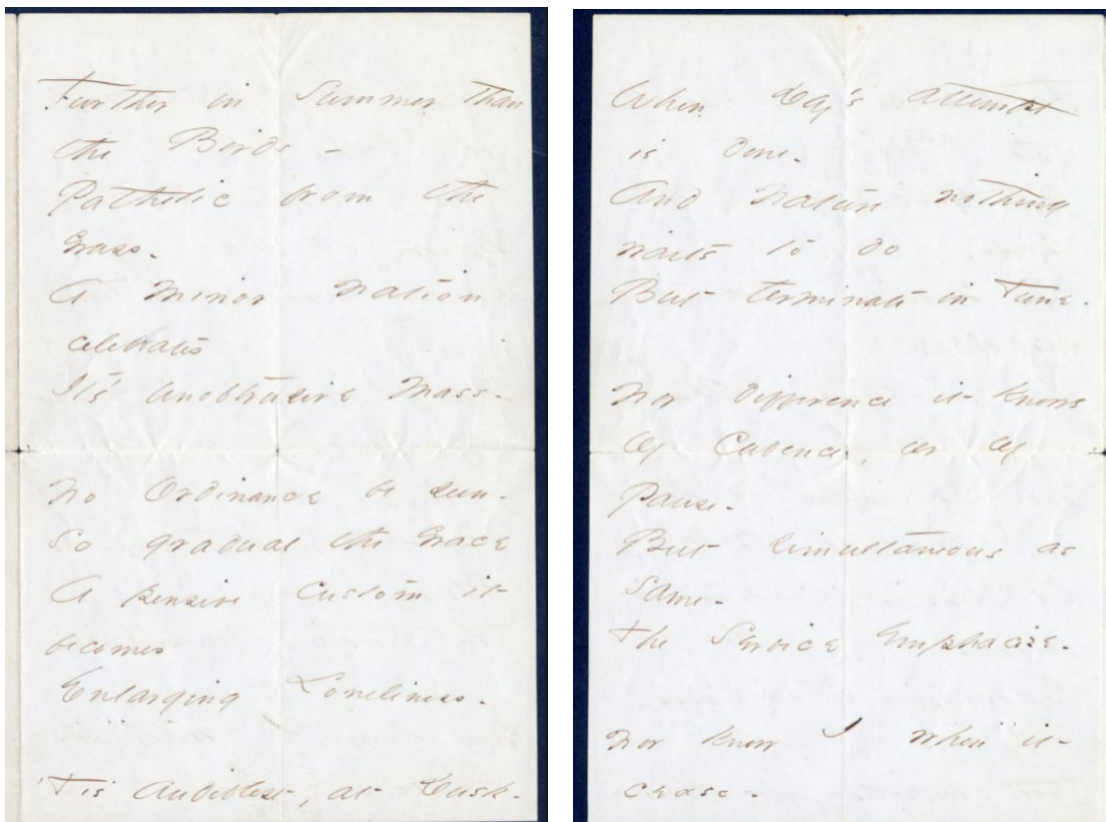 Further in Summer than
the Birds -
Pathetic from the
Grass -
A minor Nation
celebrates
It's unobtrusive Mass -
No Ordinance be seen -
So gradual the Grace
A pensive Custom it
becomes
Enlarging Loneliness -
'Tis Audiblest, at Dusk -
When Day's attempt
is done -
And Nature nothing
waits to do
But terminate in Tune -
Nor difference it knows
Of Cadence, or of
Pause -
But simultaneous as
Same -
The Service emphacize -
Nor know I when it
cease -